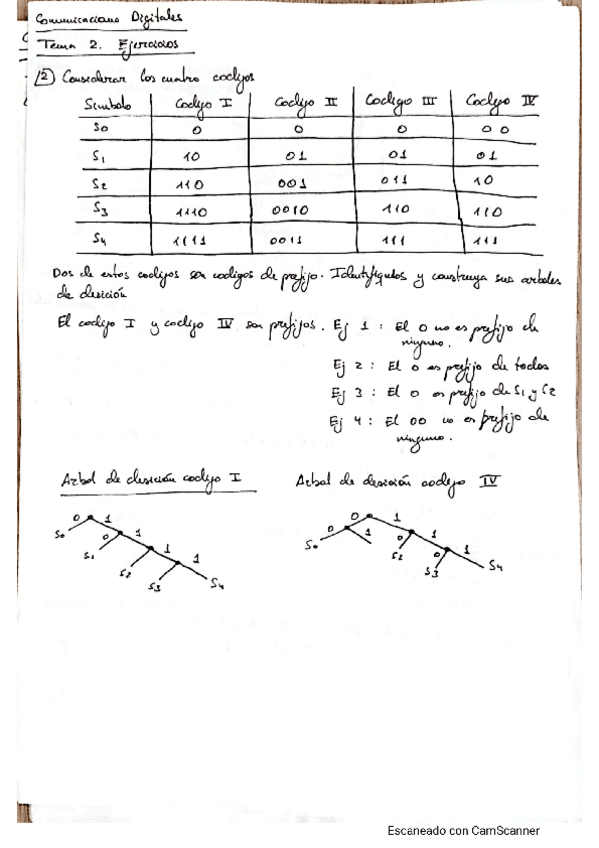 Comunicaciones Digitales
Tema 2. Ejercicios
2) Considerar los cuatro codigos
Simbolo Codigo I Codigo II Codigo III Codigo IV
S0 0 0 0 00
S1 10 01 01 01
S2 110 001 011 10
S3 1110 0010 110 110
S4 1111 0011 111 111
Dos de estos codigos son codigos de prefijo. Identifiquelos y construya sus arboles
de desición
El codigo I y codigo IV son prefijos. Ej 1: El 0 no es prefijo de
ninguno.
Ej 2: El 0 es prefijo de todos
Ej 3: El 0 es prefijo de S1 y S2
Ej 4: El 00 no es prefijo de
ninguno.
Arbol de desición codigo I Arbol de desición codigo IV
0 1 0 1
S0 0 1 S0 1 0 1
S1 1 S2 0 1
S2 1 S3 S4
S3 S4
Escaneado con CamScanner